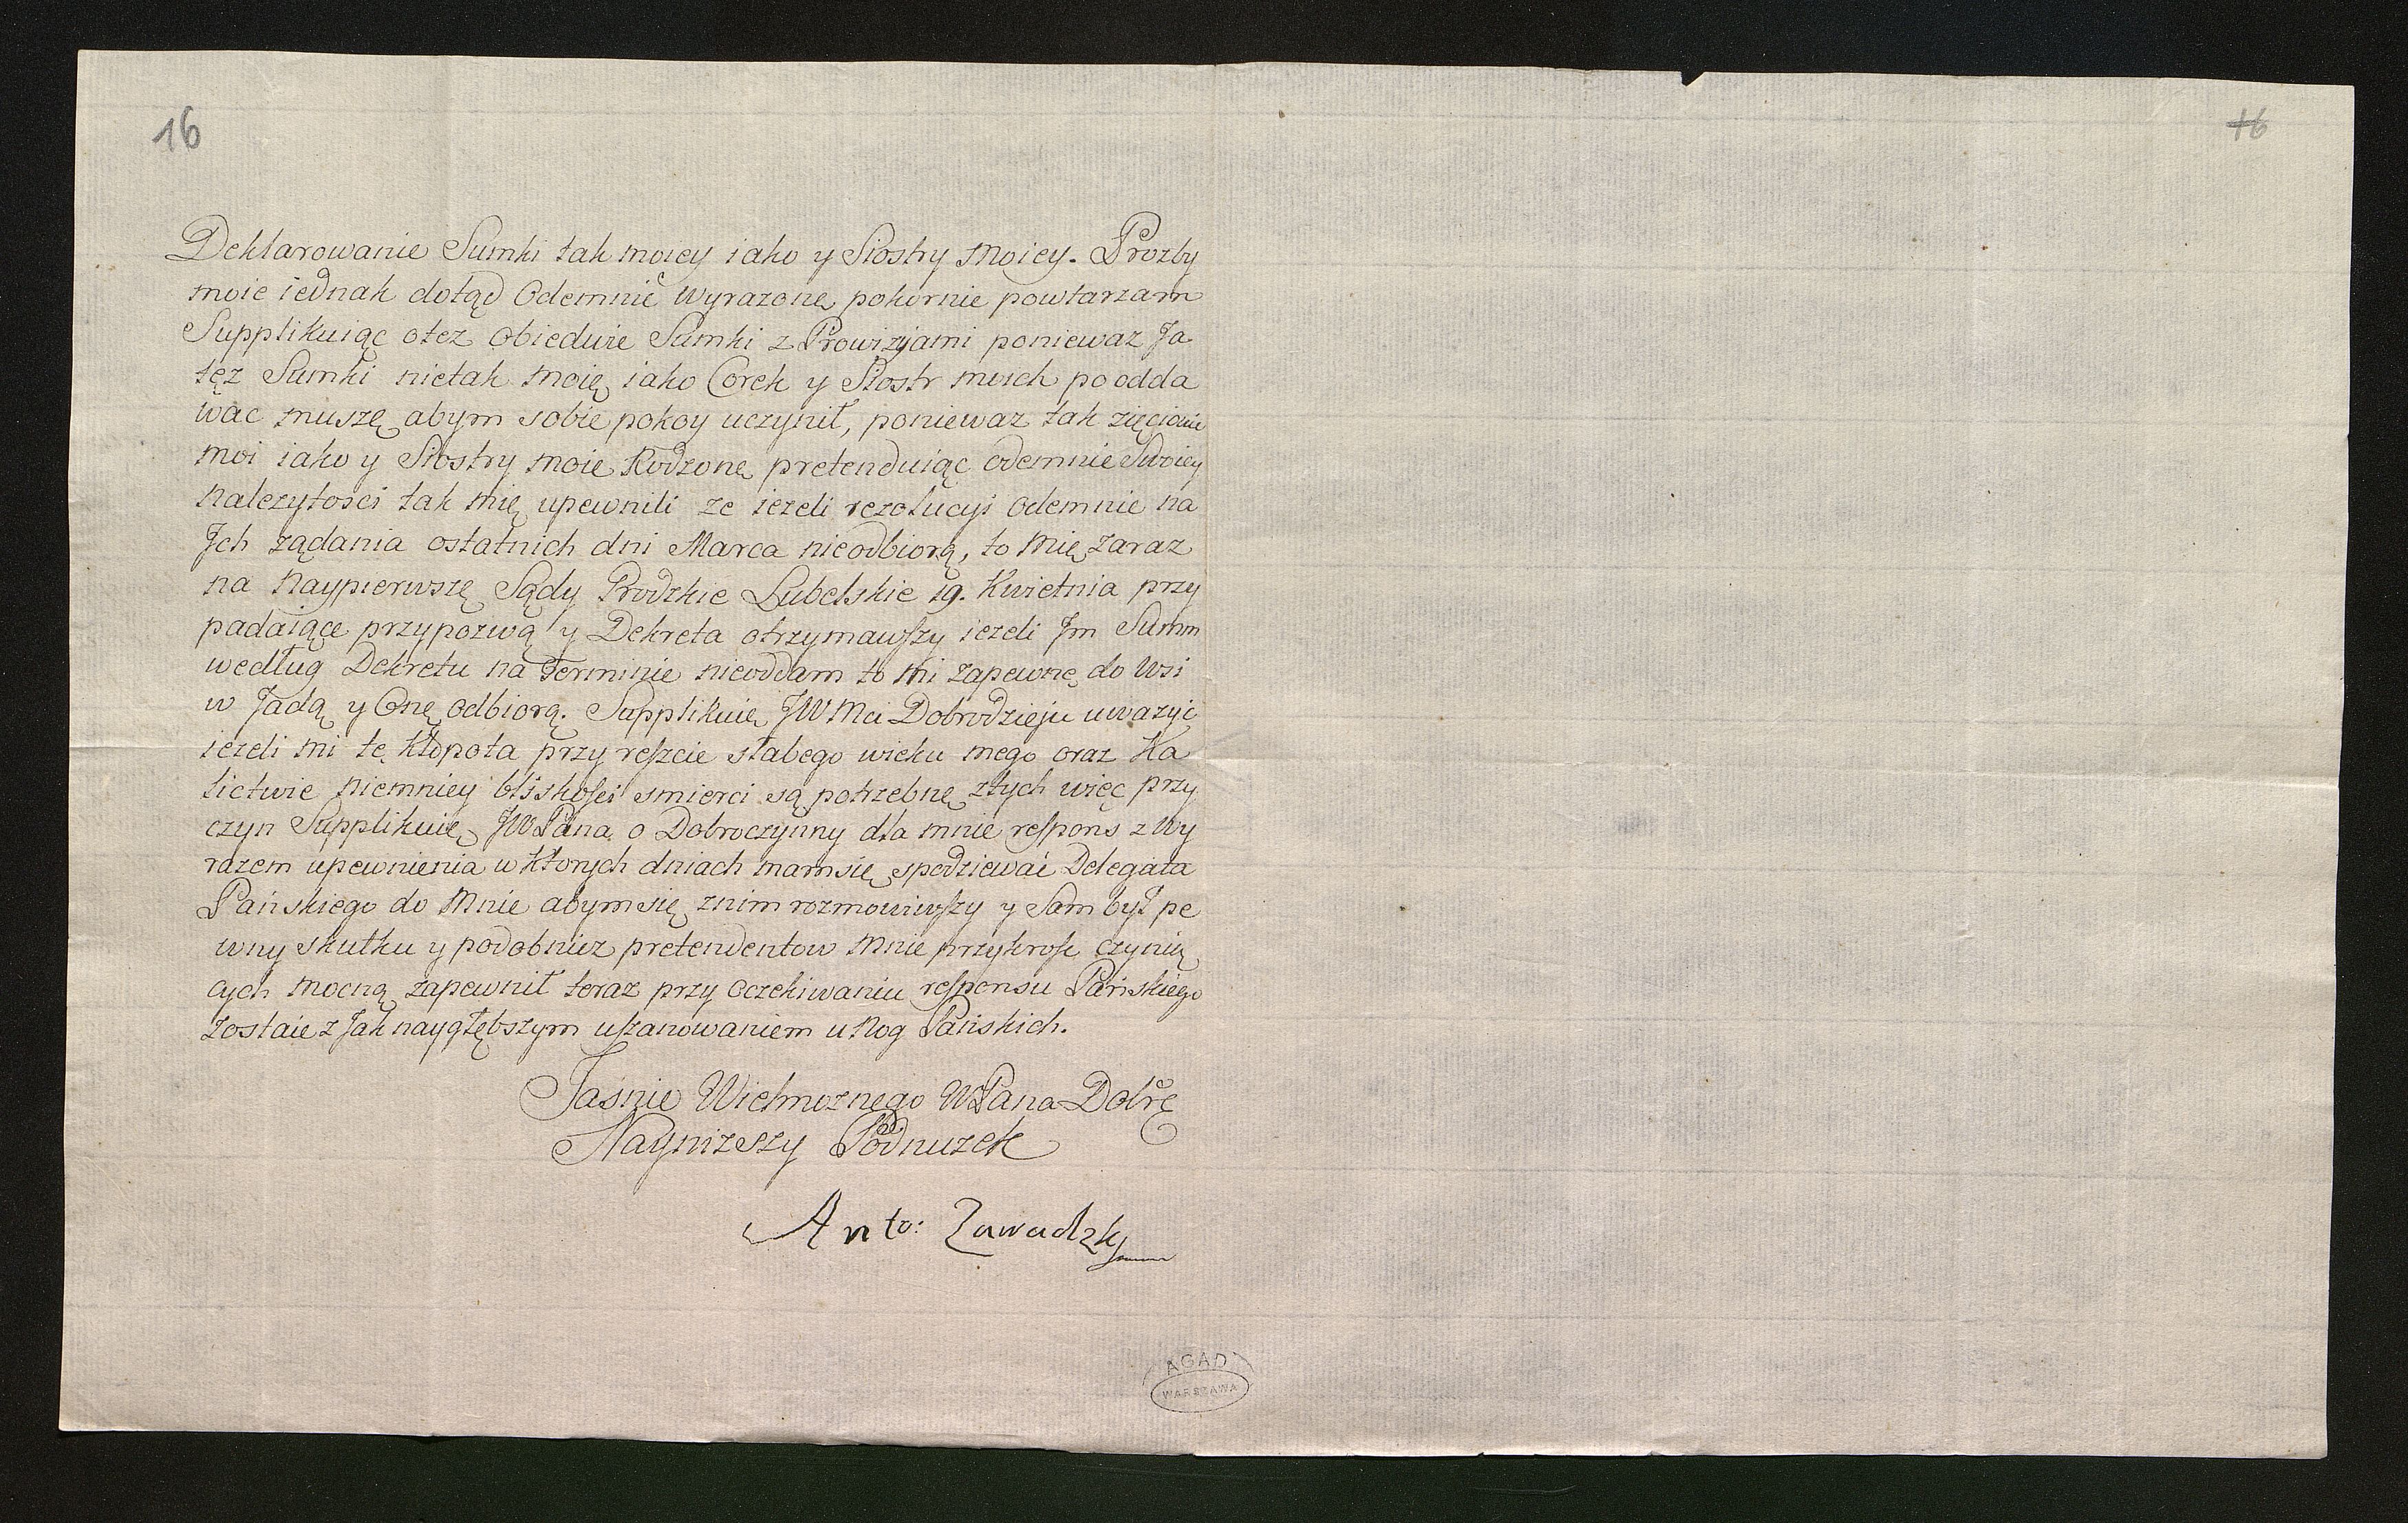 16
16
Deklarowanie Sumki tak moiey iako y Siostry Moiey. Prozby
moie iednak dotąd Odemnie wyrazonę pokornie powtarzam
Supplikuiąc otez obiedwie Sumki z Prowizyjami poniewaz Ja
tęz Sumki nietak moię iako Corek y Siostr moich poodda
wac muszę abym sobie pokoy uczynił, poniewaz tak zięciowie
moi iako y Siostry moie Rodzonę pretenduiąc odemnie Swoiey
Nalezytosci tak mię upewnili ze iezeli rezolucyi Odemnie na
Jch ządania ostatnich dni Marca nieodbiorą, to Mię zaraz
na Naypierwszę Sądy Grodzkie Lubelskie 19. Kwietnia przy
padaiące przypozwą y Dekreta otrzymawszy iezeli Jm Summ
według Dekretu na Terminie nieoddam to Mi zapewnę do Wsi
w Jadą y Onę Odbiorą. Supplikuię JWMci Dobrodzieju uwazyć
iezeli mi tę kłopota przy reszcie słabego wieku mego oraz Ka
lictwie niemniey bliskosci smierci są potrzebnę ztych więc przy
czyn Supplikuię JWPana o Dobroczynny dla mnie respons z Wy
razem upewnienia w ktorych dniach mamsię spodziewać Delegata
Pańskiego do Mnie abymsię znim rozmowiwszy y Sam był pe
wny skutku y podobniez pretendentow Mnie przykrość czynią
cych Mocną zapewnił teraz przy Oczekiwaniu responsu Pańskiego
zostaie z Jak naygłębszym uszanowaniem u Nog Pańskich.
Jasnie Wielmoznego WPana Dobrę
Naynizszy Podnuzek
Anto: Zawadzky
AGAD
WARSZAWA